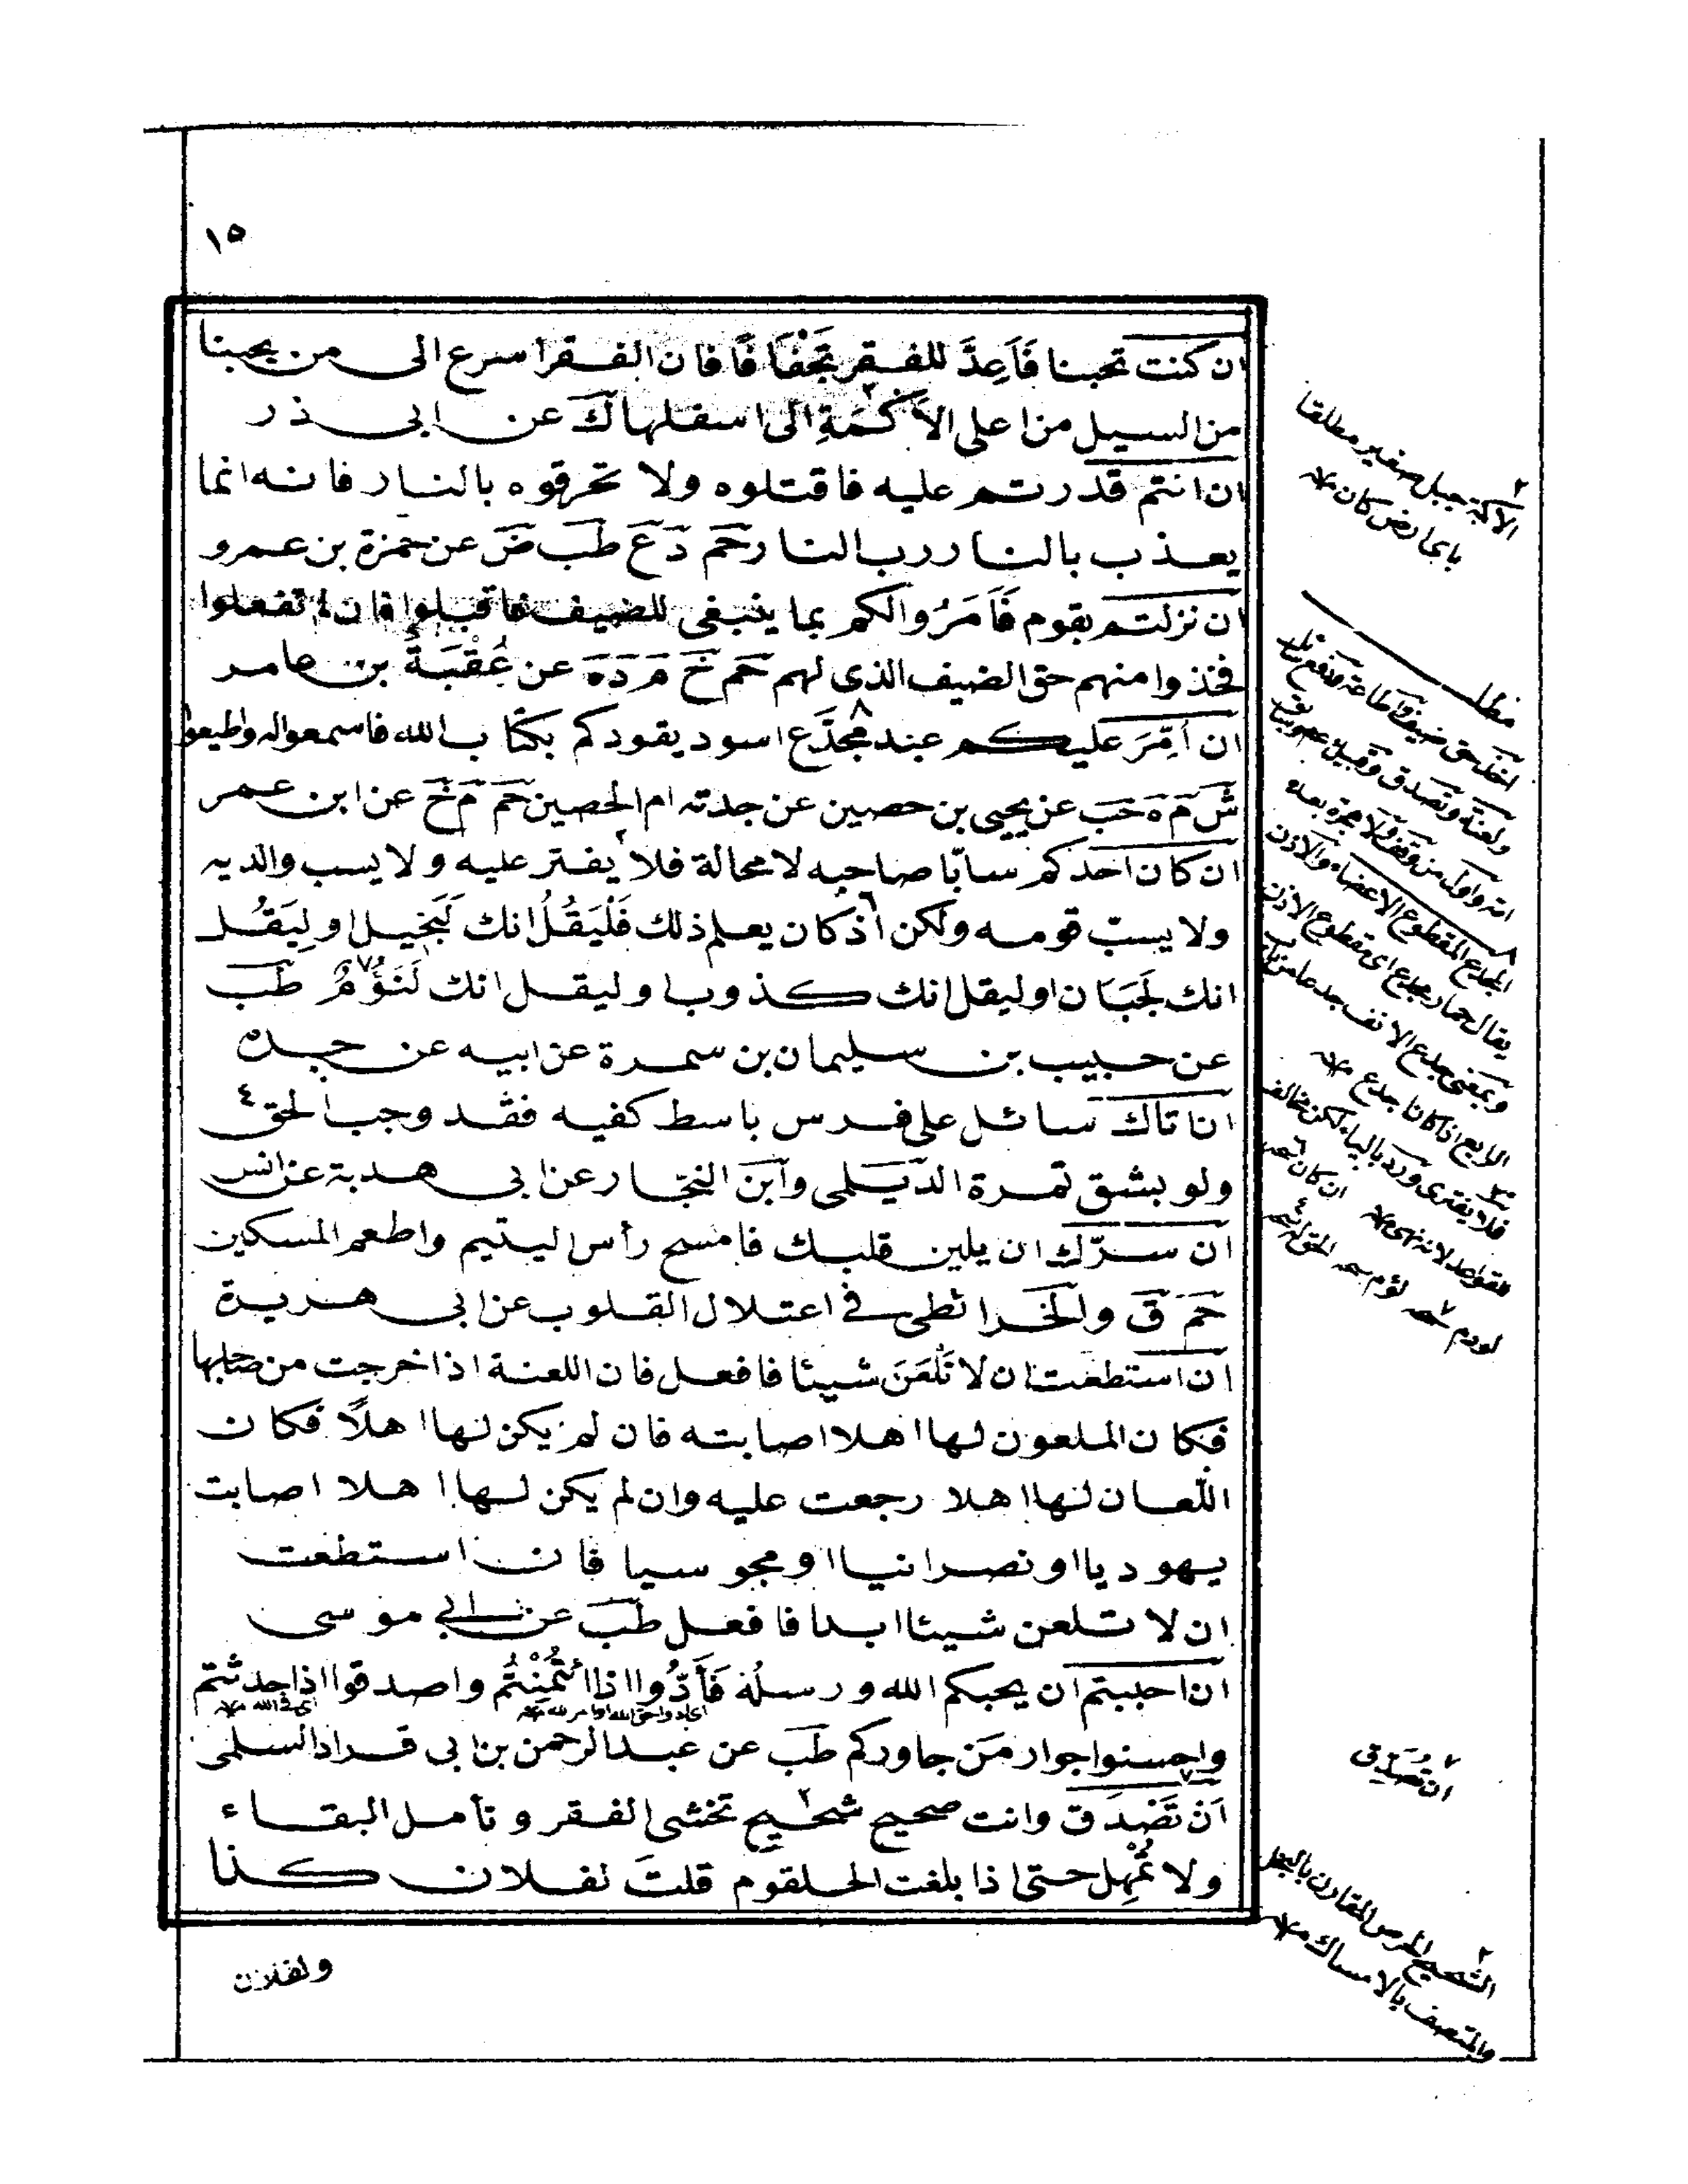 ١٥
ان كنت تحبنا فَاَعِدَّ للفقر تَجْفَافًا فان الفقر اسرع الى من يحبنا
من السيل من اعلى الاَكَمَةِ الى اسفلها ك عن ابى ذر
ان انتم قدرتم عليه فاقتلوه ولا تحرقوه بالنار فانه انما
يعذب بالنار رب النار حم د ع طب ض عن حمزة بن عمرو
ان نزلتم بقوم فَاَمَرُوا لكم بما ينبغى للضيف فاقبلوا فان لم تفعلوا
فخذوا منهم حق الضيف الذى لهم حم خ م د ه عن عُقْبَةَ بن عامر
ان اُمِّرَ عليكم عبد مجدَّع اسود يقودكم بكتاب الله فاسمعوا له واطيعوا
ش م ه حب عن يحيى بن حصين عن جدته ام الحصين حم م خ عن ابن عمر
ان كان احدكم سابّا صاحبه لا محالة فلا يفتر عليه ولا يسب والديه
ولا يسبّ قومه ولكن اذ كان يعلم ذلك فَلْيَقُلْ انك لَبَخيل او لِيَقُل
انك لَجَبَان او ليقل انك كذوب او ليقل انك لَنَؤُمٌ طب
عن حبيب بن سليمان بن سمرة عن ابيه عن جده
ان اتاك سائل على فرس باسط كفيه فقد وجب الحق
ولو بشق تمرة الدَّيلمى وابن النجار عن ابى هدبة عن انس
ان سرّك ان يلين قلبك فامسح رأس اليتيم واطعم المسكين
حم ق والخرائطى فى اعتلال القلوب عن ابى هريرة
ان استطعت ان لا تَلْعَنَ شيئا فافعل فان اللعنة اذا خرجت من صاحبها
فكان الملعون لها اهلا اصابته فان لم يكن لها اهلًا فكان
اللّعان لها اهلا رجعت عليه وان لم يكن لها اهلا اصابت
يهوديا او نصرانيا او مجوسيا فان استطعت
ان لا تلعن شيئا ابدا فافعل طب عن ابى موسى
ان احببتم ان يحبكم الله ورسلُه فَأَدُّوا اذا ائتُمِنْتُم واصدقوا اذا حدثتم
واحسنوا جوار مَن جاوركم طب عن عبد الرحمن بن ابى قراد السلمى
اَنْ تَصَدَّق وانت صحيح شحيح تخشى الفقر وتأمل البقاء
ولا تُمْهِل حتى اذا بلغت الحلقوم قلتَ لفلان كذا
ولفلان
٢ الاكمة جبل صغير مطلقا
باى ارض كان
مطلب
المجدع المقطوع الاعضاء والاذن
يقال حمار مجدع اى مقطوع الاذن
فلا يفترى ورد بالياء لكن مخالف
للقواعد لانه نهى
٧ ان تصدق
٢ الشحيح الحرص المقارن بالبخل
والمتصف بالامساك